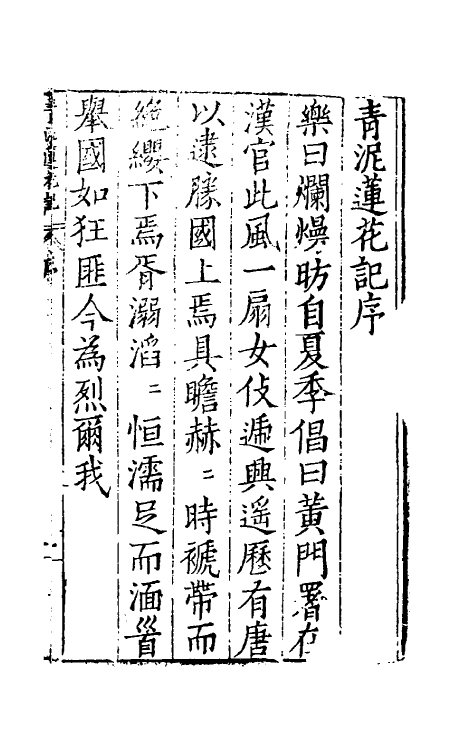 青泥蓮花記序
樂曰爛熳昉自夏季倡曰黄門署在
漢官此風一扇女伎遞興遥歷有唐
以逮勝國上焉具瞻赫〻時褫帶而
絶纓下焉胥溺滔〻恒濡足而湎首
舉國如狂匪今為烈爾我